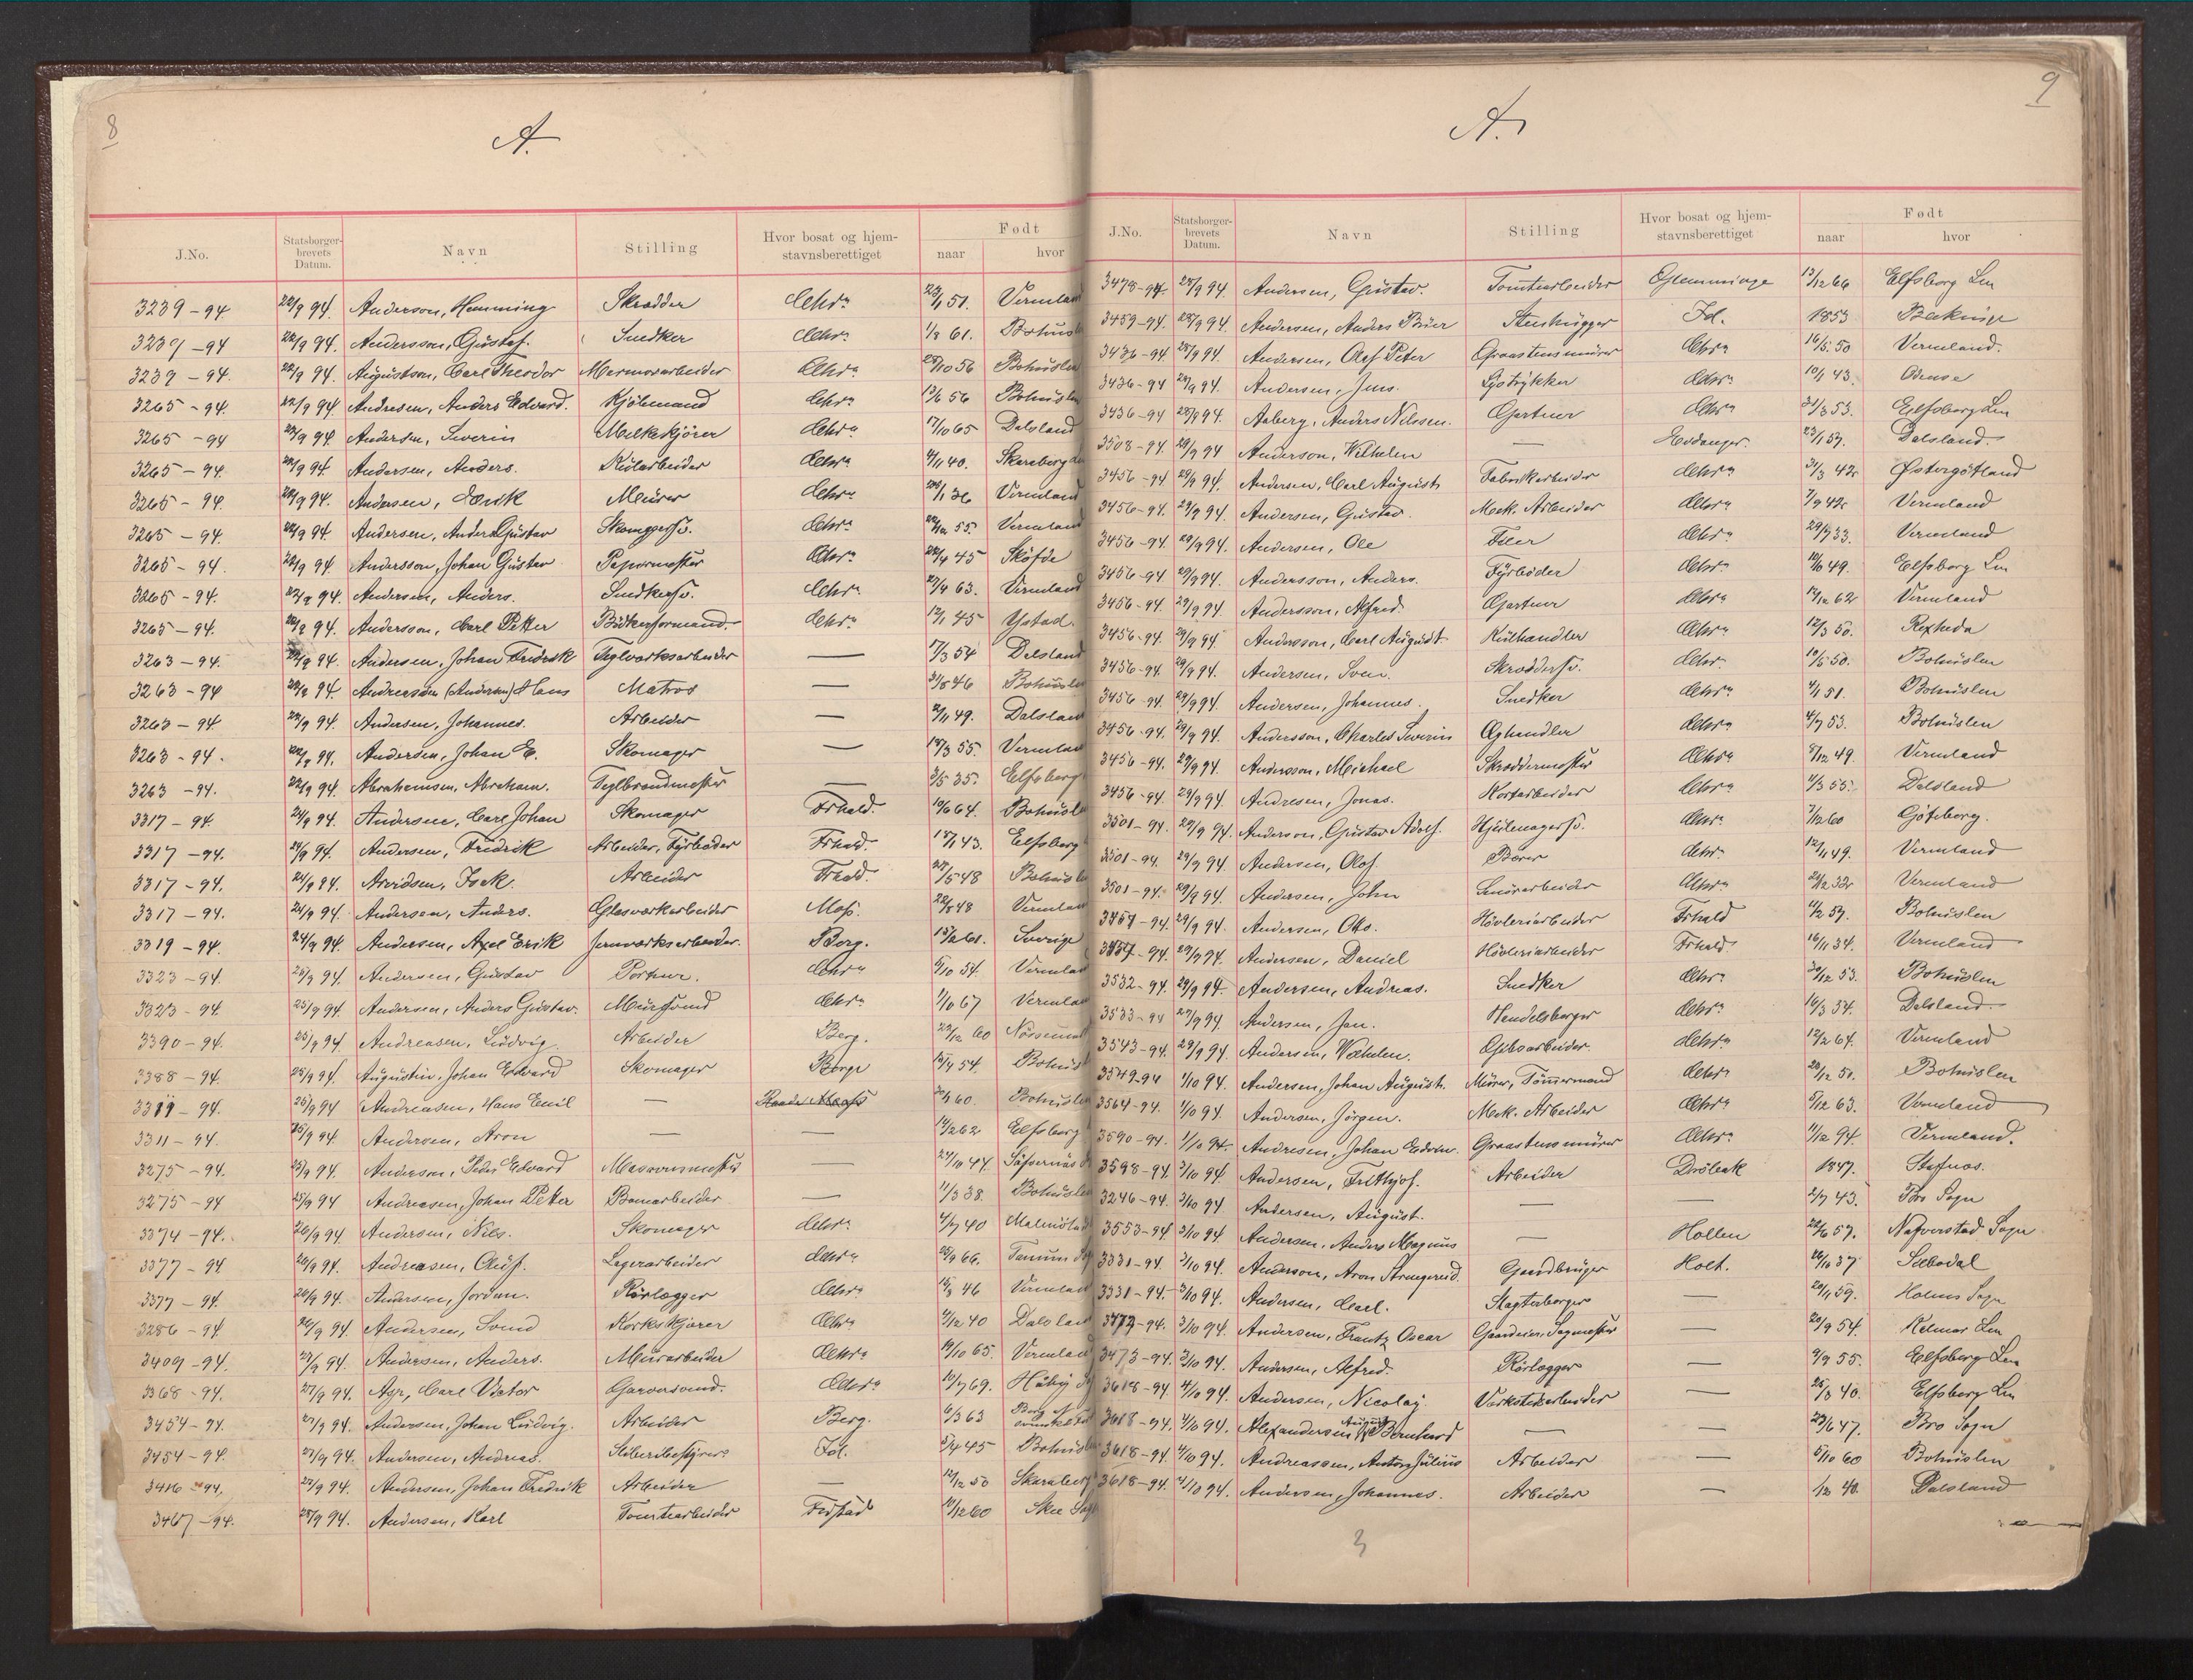 8
A.
J.No. Statsborger-brevets Datum. Navn Stilling Hvor bosat og hjem-stavnsberettiget Født naar hvor
3239 - 94 22/9 94. Anderson, Hemming Skrædder Chra 51. Vermland
3239 - 94 22/9 94. Andersson, Gustaf. Snedker Chra 1/8 61. Bohusl
3239 - 94. 22/9 94. Augustson, Carl Theodor Marmorarbeider Chra 56 Bohuslen
3265 - 94. 22/9 94. Andresen, Anders Edvard. Kjölemand Chra 13/6 56 Bohuslen
3265 - 94 22/9 94. Andersen, Severin Melkekjörer Chra 17/10 65 Dalsland
3265 - 94. 22/9 94. Andersen, Anders. Chra 40. Skaraborg
3265 - 94. 22/9 94. Andersen, Murer Chra 36 Vermland
3265 - 94. 22/9 94. Andersen, Anders Gustav Chra 55. Vermland
3265 - 94. 22/9 94. Andersson, Johan Gustav Chra 45 Sköfde
3265 - 94. 22/9 94. Andersen, Anders. Chra 63. Vermland
3265 - 94. 22/9 94. Andersson, Carl Petter Chra 12/1 45 Ystad.
3263 - 94. 22/9 94. Andersen, Johan Fredrik Teglværksarbeider — 17/3 54 Dalsland
3263 - 94 22/9 94. Andreassen (Andersen) Hans Matros — 31/8 46 Bohuslen
3263 - 94. 22/9 94. Andersen, Johannes. Arbeider — 49. Dalsland
3263 - 94. 22/9 94. Andersen, Johan E. Skomager — 55. Vermland
3263 - 94. 22/9 94. Abrahamsen, Abraham. Teglbrændmester — 3/5 35. Elfsborg
3317 - 94. 24/9 94. Andersen, Carl Johan Skomager Frhald. 64. Bohusl
3317 - 94. 24/9 94. Andersen, Fredrik Arbeider, Fyrböder Frhald. 43. Elfsborg
3317 - 94. 24/9 94. Arvidsen, Isak. Arbeider Frhald. 48 Bohusl
3317 - 94. 24/9 94. Andersen, Anders. Glasværkarbeider Moss. 48 Vermland
3319 - 94. 24/9 94. Andersen, Axel Erik Jernværksarbeider. Borg. 61. Sverige
3323 - 94. 25/9 94. Andersen, Gustav Portner. Chra 5/10 54. Vermland
3323 - 94 25/9 94. Andersen, Anders Gustav. Chra 1/10 67 Vermland
3390 - 94. 25/9 94 Andreasen, Ludvig. Arbeider Berg. 60
3388 - 94. 25/9 94. Augustin, Johan Edvard Skomager Borge 54. Bohusl
3311 - 94. 25/9 94 Andreasen, Hans Emil — 60. Bohuslen
3311 - 94. 25/9 94. Andersen, Aron — — 62 Elfsborg
3275 - 94. 25/9 94. Anderson, Peder Edvard — 44.
3275 - 94 25/9 94 Andreasen, Johan Peter Bomarbeider — 11/3 38. Bohuslen
3374 - 94. 26/9 94. Andersen, Nils. Skomager Chra 40
3377 - 94 26/9 94. Andreasen, Oluf. Lagerarbeider Chra 66. Tanum
3377 - 94. 26/9 94. Andersen, Jordan. Rörlægger Chra 46 Vermland
3286 - 94. 26/9 94. Andersen, Svend Chra 40 Dalsland
3409 - 94. 27/9 94. Andersen, Anders. Murarbeider Chra 19/10 65. Vermland
3368 - 94. 27/9 94. Agr, Carl Victor Garversvend. Chra 69. Håby
3454 - 94. 27/9 94. Andersen, Johan Ludvig. Arbeider Berg. 6/3 63
3454 - 94. 27/9 94. Andersen, Andreas. Id. 45 Bohuslen
3416 - 94. 27/9 94. Andersen, Johan Fredrik Arbeider — 12/12 50 Skaraborg
3467 - 94. 28/9 94. Andersen, Karl Tomtearbeider Frstad 60 Skee Sogn
9
A.
J.No. Statsborger-brevets Datum. Navn Stilling Hvor bosat og hjem-stavnsberettiget Født naar hvor
3478 - 94. 28/9 94. Andersen, Gustav. Tomtearbeider Glemminge 13/12 66 Elfsborg Len
3459 - 94. 28/9 94. Andersen, Anders Stenhugger Id. 1853
3436 - 94. 28/9 94. Andersen, Olof Peter Graastensmurer Chra 16/5 50 Vermland.
3436 - 94 28/9 94. Andersen, Jens. Chra 10/1 43. Odense
3436 - 94 28/9 94. Aaberg, Anders Nilssen. Gartner Chra 31/3 53. Elfsborg Len
3508 - 94. 29/9 94 Anderson, Wilhelm — 23/1 57. Dalsland.
3456 - 94 29/9 94. Andersen, Carl August Fabrikarbeider Chra 31/3 42 Östergötland
3456 - 94. 29/9 94. Andersen, Gustav. Mek. Arbeider Chra 42 Vermland
3456 - 94 29/9 94. Andersen, Ole Filer Chra 33. Vermland
3456 - 94 29/9 94. Andersson, Anders. Fyrböder Chra 49. Elfsborg Len
3456 - 94. 29/9 94. Andersson, Alfred Gartner Chra 62 Vermland
3456 - 94. 29/9 94 Andersson, Carl August Kulhandler Chra 12/3 50.
3456 - 94. 29/9 94. Andersen, Sven. Chra 50. Bohuslen
3456 - 94. 29/9 94. Andersen, Johannes. Snedker Chra 51. Bohuslen
3456 - 94. 29/9 94. Andersson, Charles Severin Æghandler Chra 53. Bohuslen
3456 - 94. 29/9 94. Andersson, Michael Skræddermester Chra 49. Vermland
3456 - 94. 29/9 94. Andresen, Jonas. Chra 55. Dalsland
3501 - 94. 29/9 94. Anderson, Gustav Adolf. Chra 7/12 60 Göteborg.
3501 - 94. 29/9 94 Andersen, Olof Chra 49. Vermland
3501 - 94. 29/9 94. Andersen, John Chra 32 Vermland
3457 - 94. 29/9 94. Andersen, Otto. Hövleriarbeider Frhald 57. Bohuslen
3457 - 94. 29/9 94. Andersen, Daniel Hövleriarbeider Frhald 16/11 34. Vermland
3532 - 94. 29/9 94. Andersen, Andreas. Snedker Chra 53. Bohuslen
3533 - 94 29/9 94. Andersen, Jan. Handelsborger Chra 16/3 34. Dalsland.
3543 - 94. 29/9 94. Andersen, Gibsarbeider. Chra 64. Vermland
3549 - 94 1/10 94. Andersen, Johan August. Murer, Tömmermand Chra 50. Bohuslen
3564 - 94. 1/10 94. Andersen, Jörgen. Mek. Arbeider Chra 63. Vermland
3590 - 94. 1/10 94. Andresen, Johan Edvin. Graastensmurer Chra 94. Vermland.
3598 - 94. 2/10 94. Andersen, Frithjof. Arbeider Dröbak 1847. Stafnäs.
3246 - 94. 3/10 94. Andersen, August. — — 43. Bro Sogn
3553 - 94 3/10 94 Andersen, Anders Magnus — Hollen 57. Nafverstad Sogn
3331 - 94. 3/10 94. Anderson, Aron Strengereid. Gaardbruger Holt. 37
3331 - 94. 3/10 94. Andersen, Carl. Slagterborger — 59. Holms Sogn
3473 - 94. 3/10 94. Andersen, Frantz Oscar Gaardeier, Sagmester — 20/9 54. Kalmar Len
3473 - 94. 3/10 94. Andersen, Alfred. Rörlægger — 55. Elfsborg Len
3618 - 94 4/10 94. Andersen, Nicolaj. Verkstedarbeider — 40. Elfsborg Len
3618 - 94. 4/10 94. Alexandersen August Bernhard — — 47. Bro Sogn
3618 - 94 4/10 94. Andreassen, Anton Julius Arbeider — 5/10 60 Bohuslen
3618 - 94. 4/10 94. Andersen, Johannes. Arbeider — 40. Dalsland
3